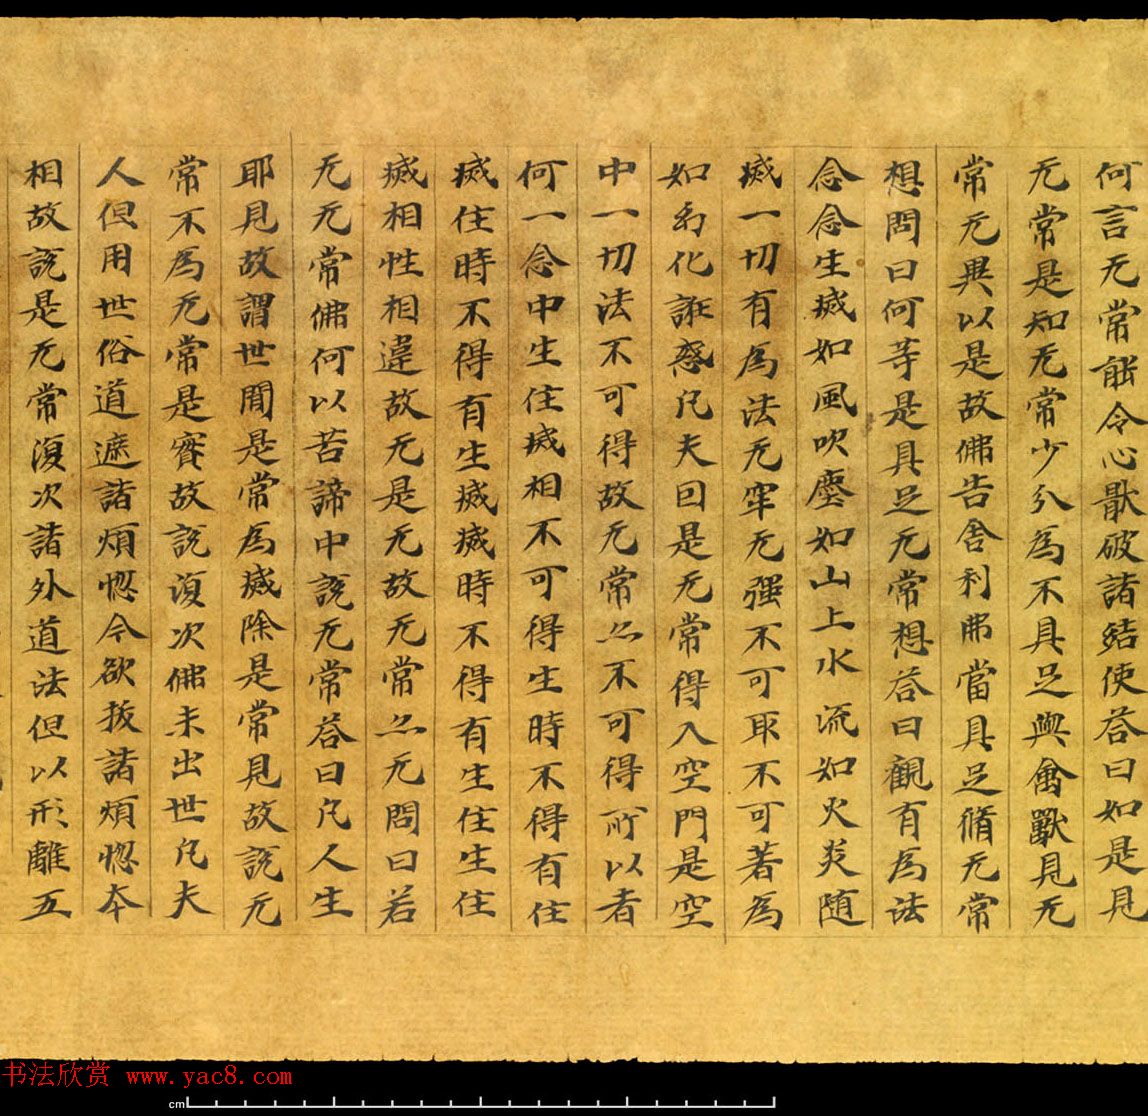 何言无常能令心猒破諸結使荅曰如是見
无常是知无常少分為不具足與禽獸見无
常无異以是故佛告舍利弗當具足脩无常
想問曰何等是具足无常想荅曰觀有為法
念念生滅如風吹塵如山上水流如火炎随
滅一切有為法无牢无强不可取不可著為
如幻化誑惑凡夫因是无常得入空門是空
中一切法不可得故无常亦不可得所以者
何一念中生住滅相不可得生時不得有住
滅住時不得有生滅滅時不得有生住生住
滅相性相違故无是无故无常亦无問曰若
无无常佛何以苦諦中說无常荅曰凡人生
耶見故謂世間是常為滅除是常見故說无
常不為无常是實故說復次佛未出世凡夫
人但用世俗道遮諸煩惚今欲拔諸煩惚本
相故說是无常復次諸外道法但以形離五
书法欣赏 www.yac8.com
cm